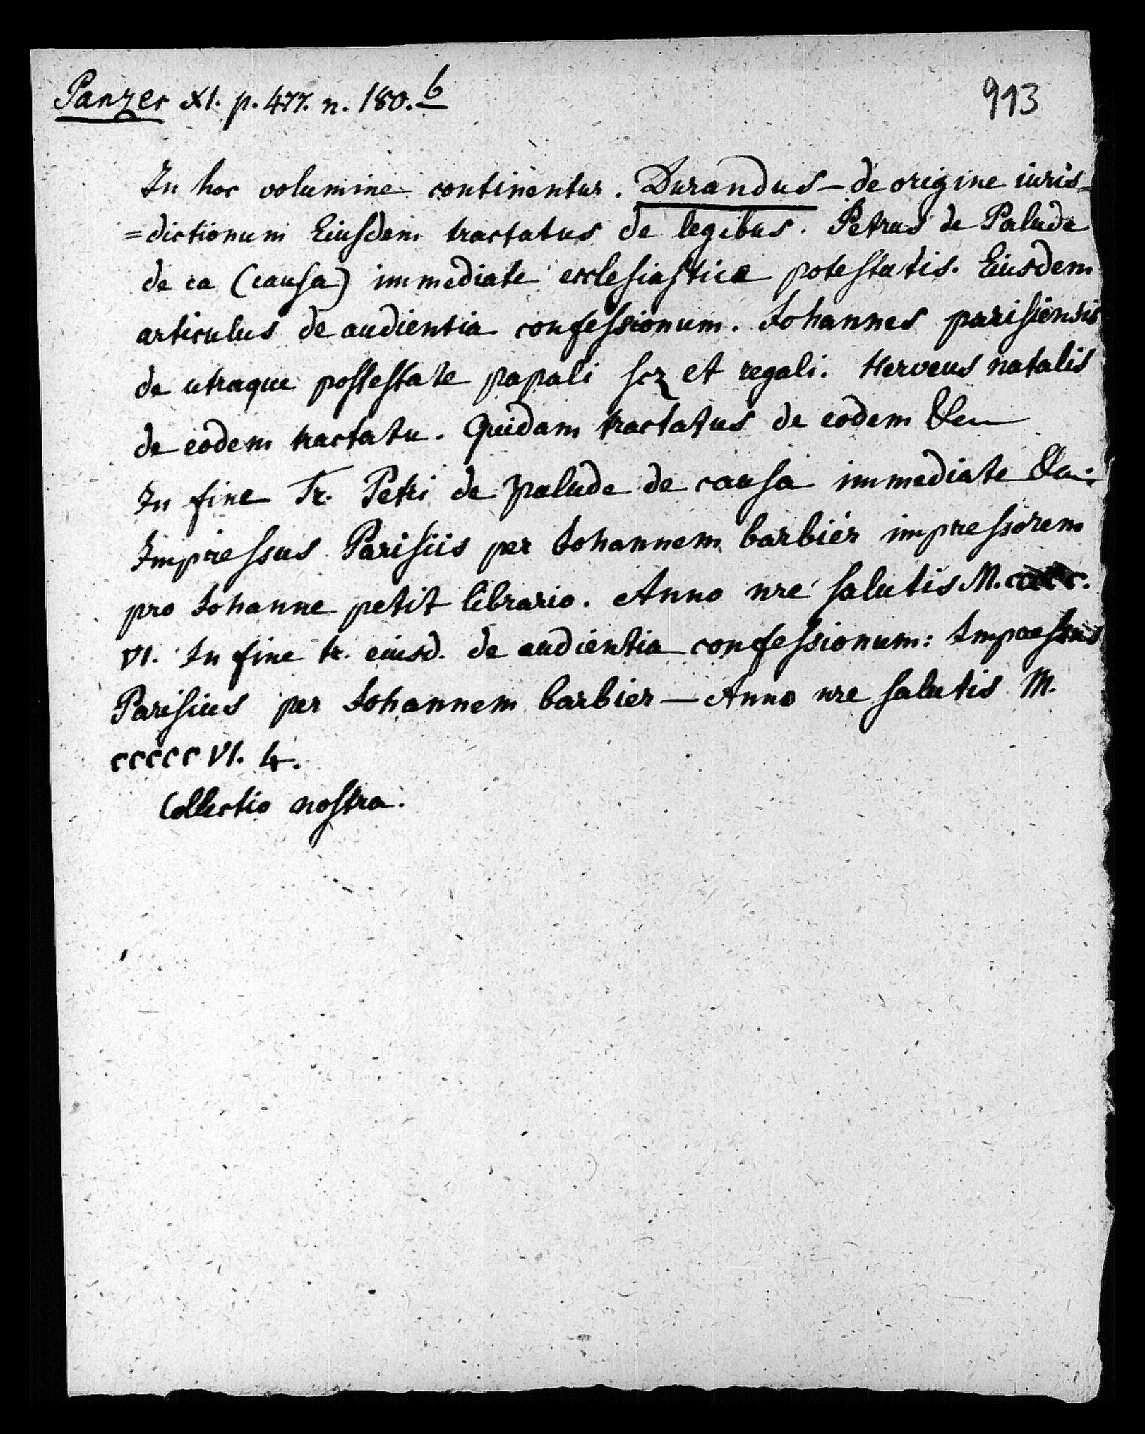 Panzer XI. p. 477. n. 180. b
993
In hoc volumine continentur. Durandus — de origine iuris=
=dictionum Eiusdem tractatus de legibus. Petrus de Palude
de ca (causa) immediate ecclesiastice potestatis. Eiusdem
articulus de audientia confessionum. Johannes parisiensis
de utraque postestate papali scz et regali. Herveus natalis
de eodem tractatu. Quidam tractatus de eodem &c
In fine Tr. Petri de palude de causa immediate &c:
Impressus Parisiis per Johannem barbier impressorem
pro Johanne petit librario. Anno nre salutis M.
VI. In fine tr. eiusd. de audientia confessionum: Impressus
Parisius per Johannem barbier — Anno nre salutis M.
ccccc VI. 4.
Collectio nostra.